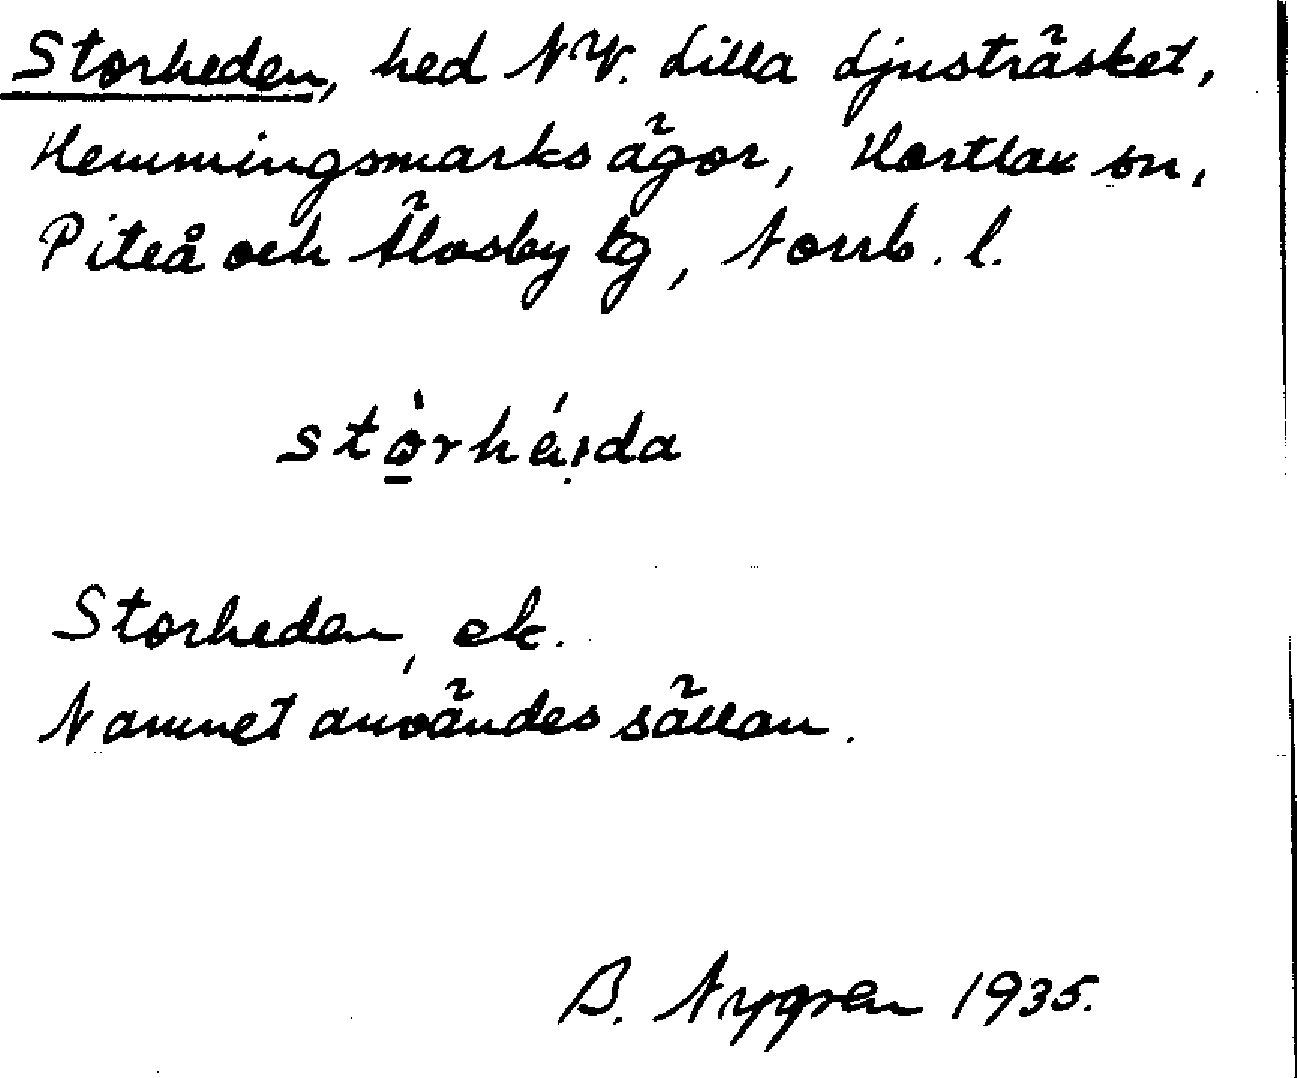 Storheden, hed NV. Lilla Ljusträsket,
Hemmingsmarks ägor, Hortlax sn,
Piteå och Älvsby tg, Norrb. l.
Storheden, ek.
Namnet användes sällan.
B. Nygren 1935.